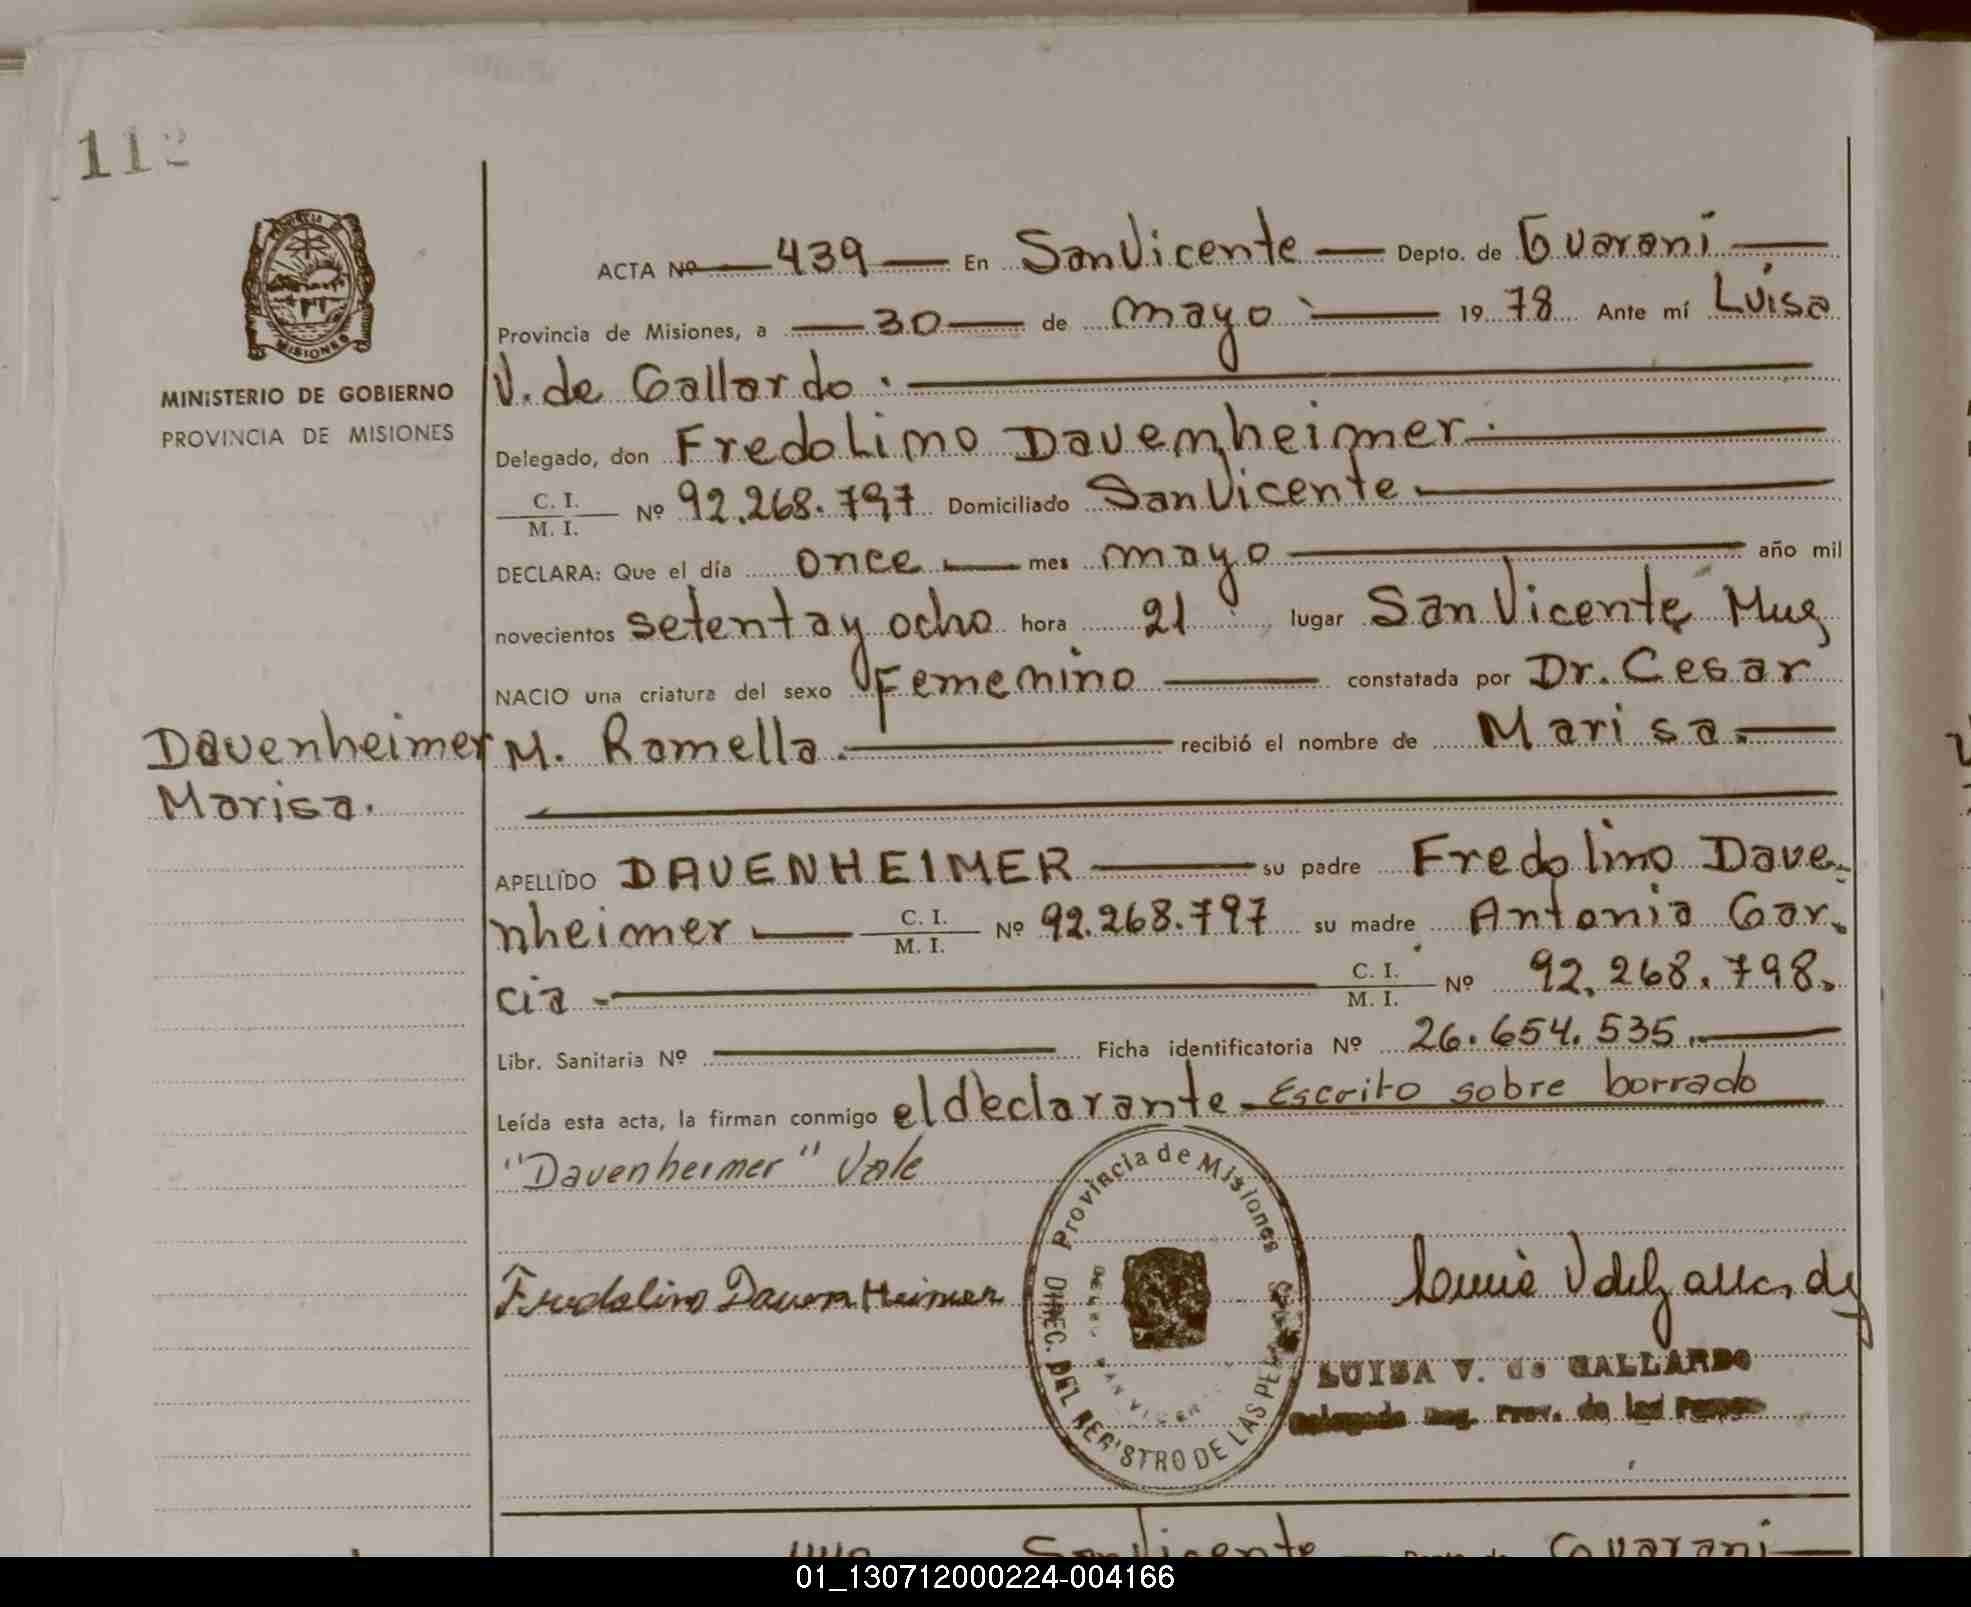 112
ACTA Nº 439 En San Vicente Depto. de Guarani
Provincia de Misiones, a 30 de mayo 19 78 Ante mí Luisa
MINISTERIO DE GOBIERNO
PROVINCIA DE MISIONES
V. de Gallardo.
Delegado, don Fredolimo Davemheimer.
C. I.
M. I. Nº 92.268.797 Domiciliado San Vicente
DECLARA: Que el día once mes mayo año mil
novecientos setenta y ocho hora 21 lugar San Vicente, Mnes
NACIO una criatura del sexo Femenino constatada por Dr. Cesar
M. Ramella. recibió el nombre de Marisa.
Davenheimer
Marisa.
APELLÍDO DAVENHEIMER su padre Fredolino Dave-
nheimer C. I.
M. I. Nº 92.268.797 su madre Antonia Gar-
cia - C. I.
M. I. Nº 92.268.798.
Libr. Sanitaria Nº Ficha identificatoria Nº 26.654.535.
Leída esta acta, la firman conmigo el declarante Escrito sobre borrado
"Davenheimer" Vale
Provincia de Misiones
DIREC. DEL REGISTRO DE LAS PERSONAS
SAN VICENTE
MISIONES
Fredolino DavenHeimer
LUISA V. de GALLARDO
Delegada Reg. Prov. de las Personas
San Vicente Guarani
01_130712000224-004166